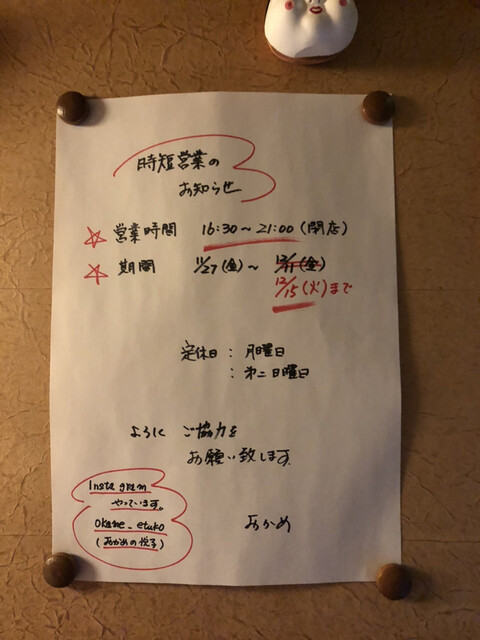 時短営業の
お知らせ
☆ 営業時間 16:30～21:00(閉店)
☆ 期間 11/27(金)～ 12/11(金)
12/15(火)まで
定休日 : 月曜日
: 第二日曜日
よろしく ご協力を
お願い致します
Instagram
やっています。
okame_etuko
(おかめの悦子)
おかめ